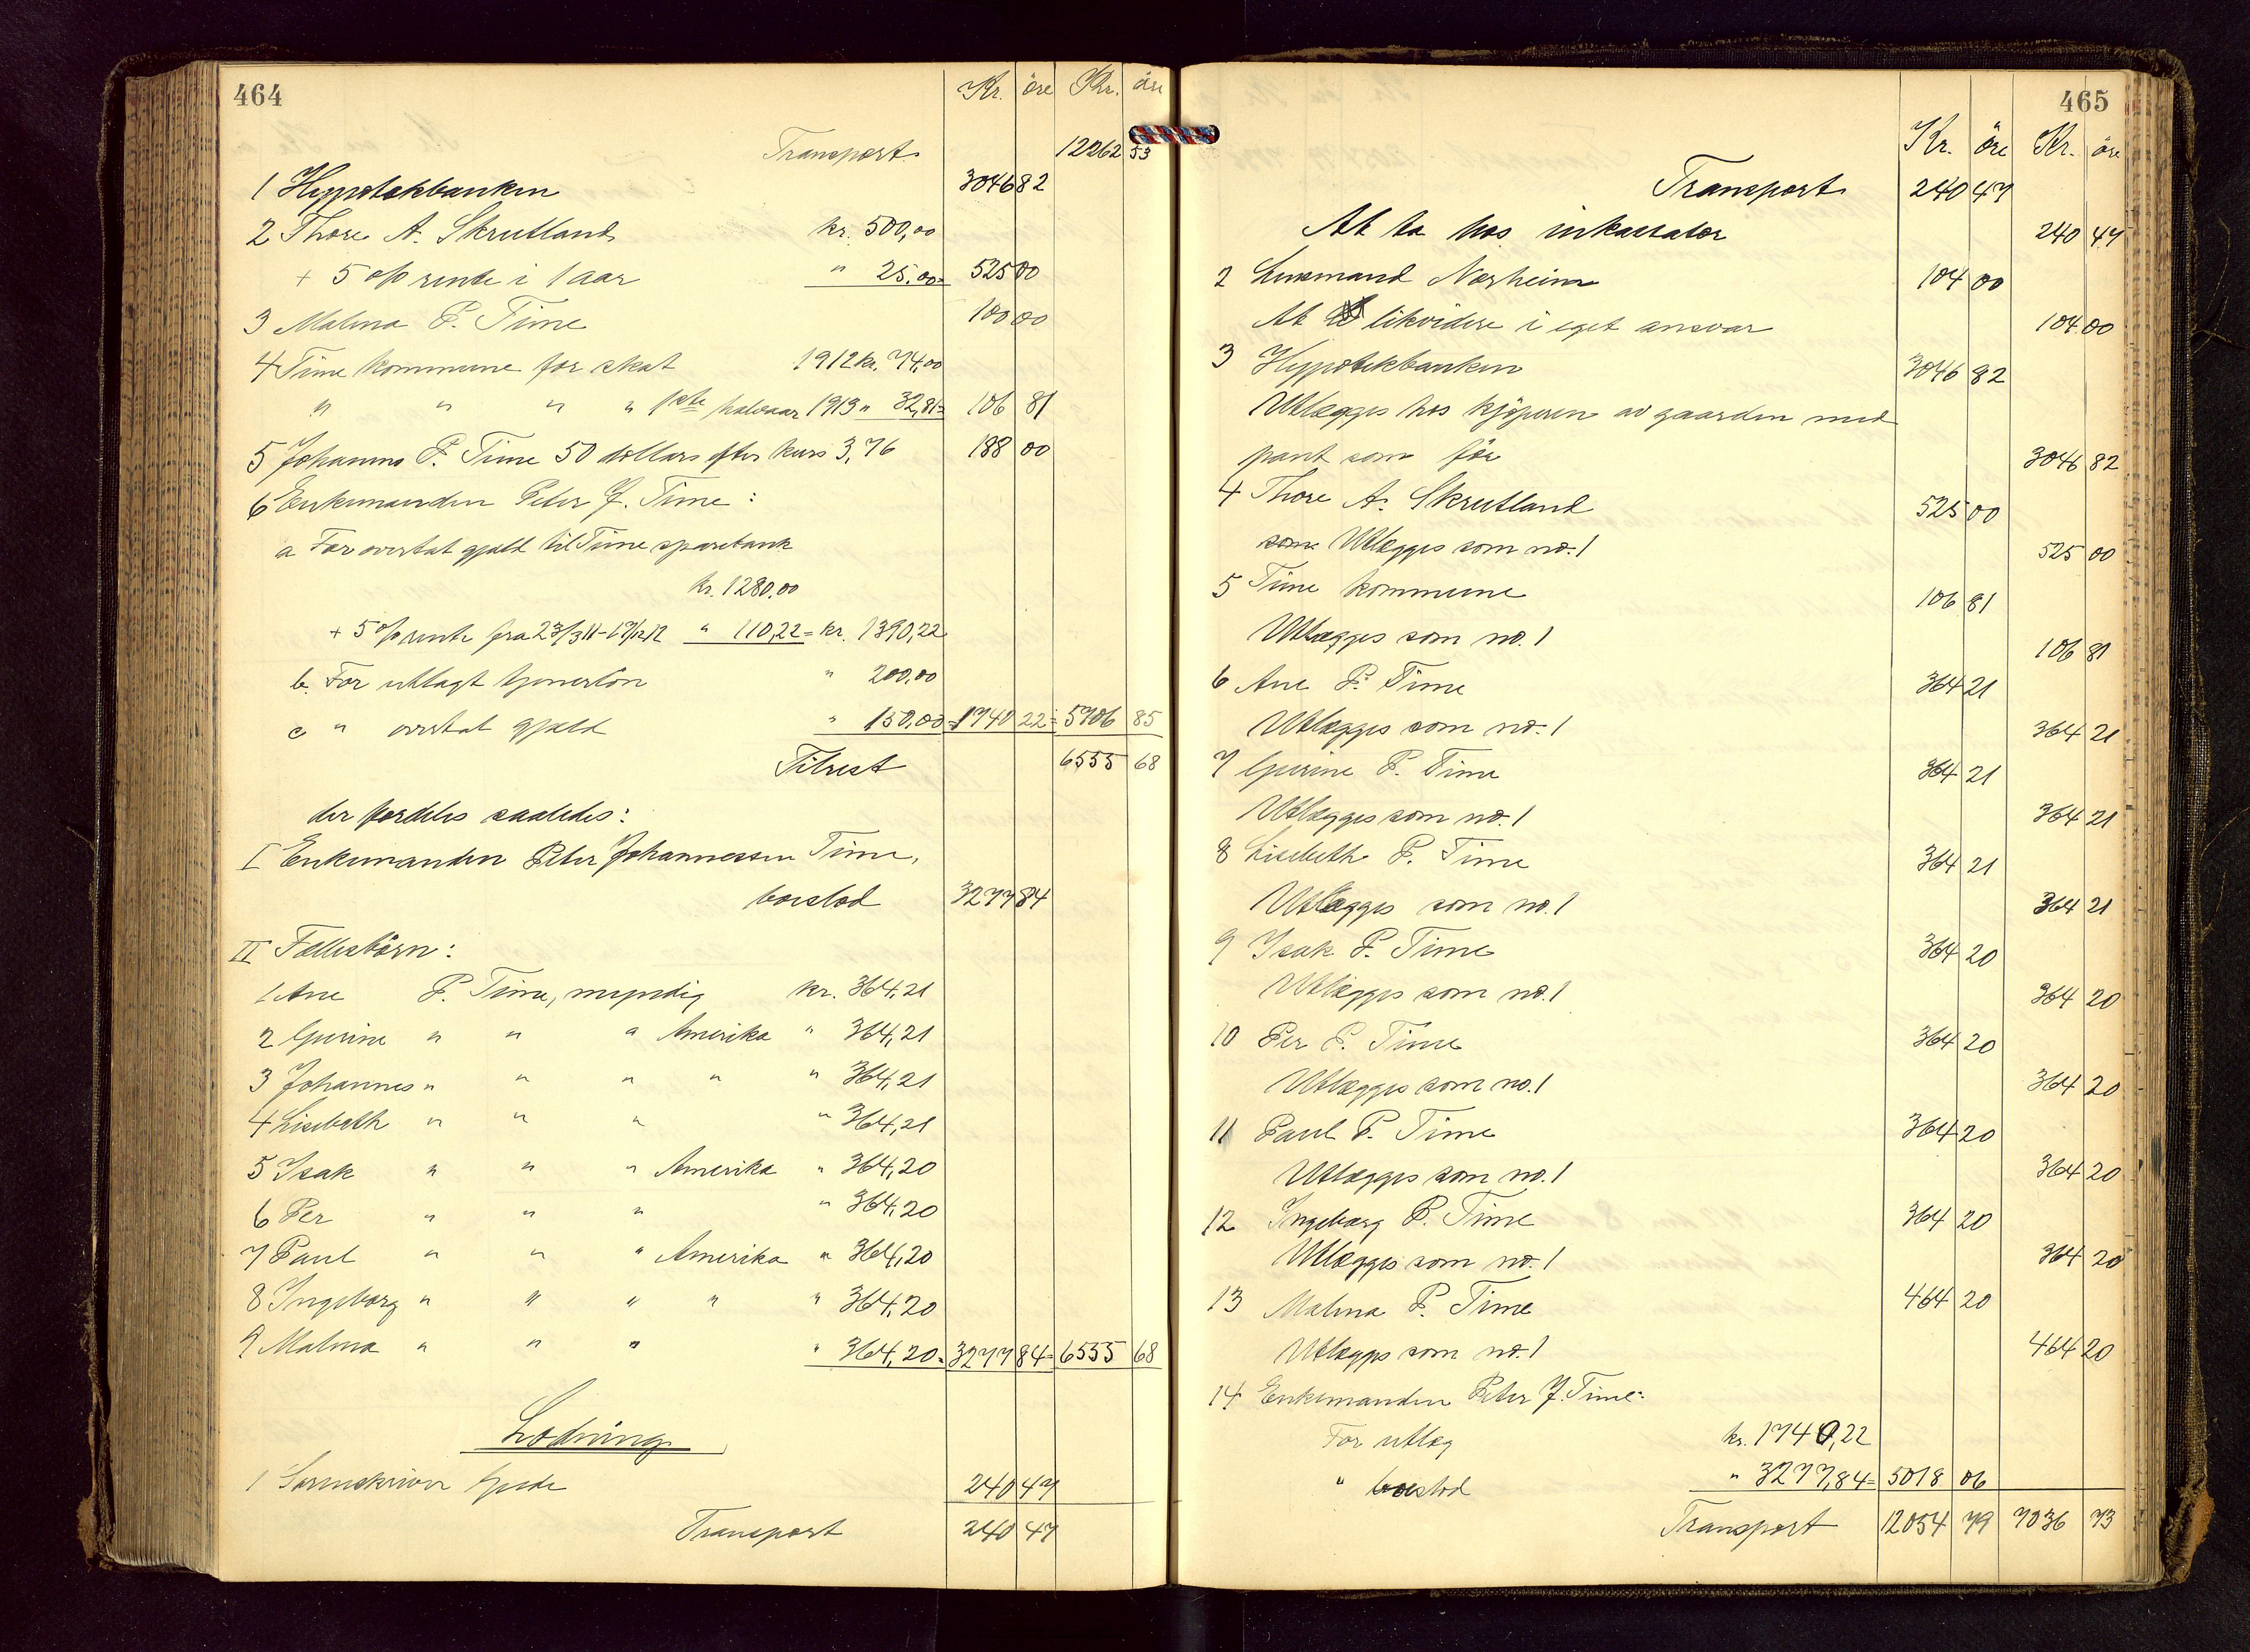 464
Kr. öre Kr. öre
Transport 12262 53
1 Hypotekbanken 3046 82
2 Thore A. Skrutland kr. 500,00
+ 5 o/o rente i 1 aar " 25.00= 525 00
3 Malina P. Time 100 00
4 Time kommune for skat 1912 kr. 74,00
" " " " 1ste halvaar 1913 " 32,81= 106 81
5 Johannes P. Time 50 dollars efter kurs 3,76 188 00
6 Enkemanden Peter J. Time:
a For overtat gjæld til Time sparebank
kr. 1280.00
+ 5 o/o rente fra 23/3 11-17/12 12 " 110,22= kr. 1390,22
b. For utlagt tjenerlön " 200,00
c " overtat gjæld " 150,00= 1740 22= 5706 85
Tilrest 6555 68
der fordeles saaledes:
I Enkemanden Peter Johannessen Time,
boeslod 3277 84
II Fællesbörn:
1 Ane P. Time, myndig kr. 364,21
2 Gurine " " " Amerika " 364,21
3 Johannes " " " " " 364,21
4 Lisebeth " " " " 364,21
5 Isak " " " Amerika " 364,20
6 Per " " " " 364,20
7 Paul " " " Amerika " 364,20
8 Ingeborg " " " " " 364,20
9 Malina " " " " 364,20= 3277 84= 6555 68
Lodning
1 Sorenskriver Gjede 240 47
Transport 240 47
465
Kr. öre Kr. öre
Transport 240 47
At ta hos inkassator 240 47
2 Lensmand Norheim 104 00
At likvidere i eget ansvar 104 00
3 Hypotekbanken 3046 82
Utlægges hos kjöperen av gaarden med
pant som för 3046 82
4 Thore A. Skrutland 525 00
som Utlægges som no. 1 525 00
5 Time kommune 106 81
Utlægges som no. 1 106 81
6 Ane P. Time 364 21
Utlægges som no. 1 364 21
7 Gurine P. Time 364 21
Utlægges som no. 1 364 21
8 Lisebeth P. Time 364 21
Utlægges som no. 1 364 21
9 Isak P. Time 364 20
Utlægges som no. 1 364 20
10 Per P. Time 364 20
Utlægges som no. 1 364 20
11 Paul P. Time 364 20
Utlægges som no. 1 364 20
12 Ingeborg P. Time 364 20
Utlægges som no. 1 364 20
13 Malina P. Time 464 20
Utlægges som no. 1 464 20
14 Enkemanden Peter J. Time:
For utlæg kr. 1740,22
" boeslod " 3277,84= 5018 06
Transport 12054 79 7036 73